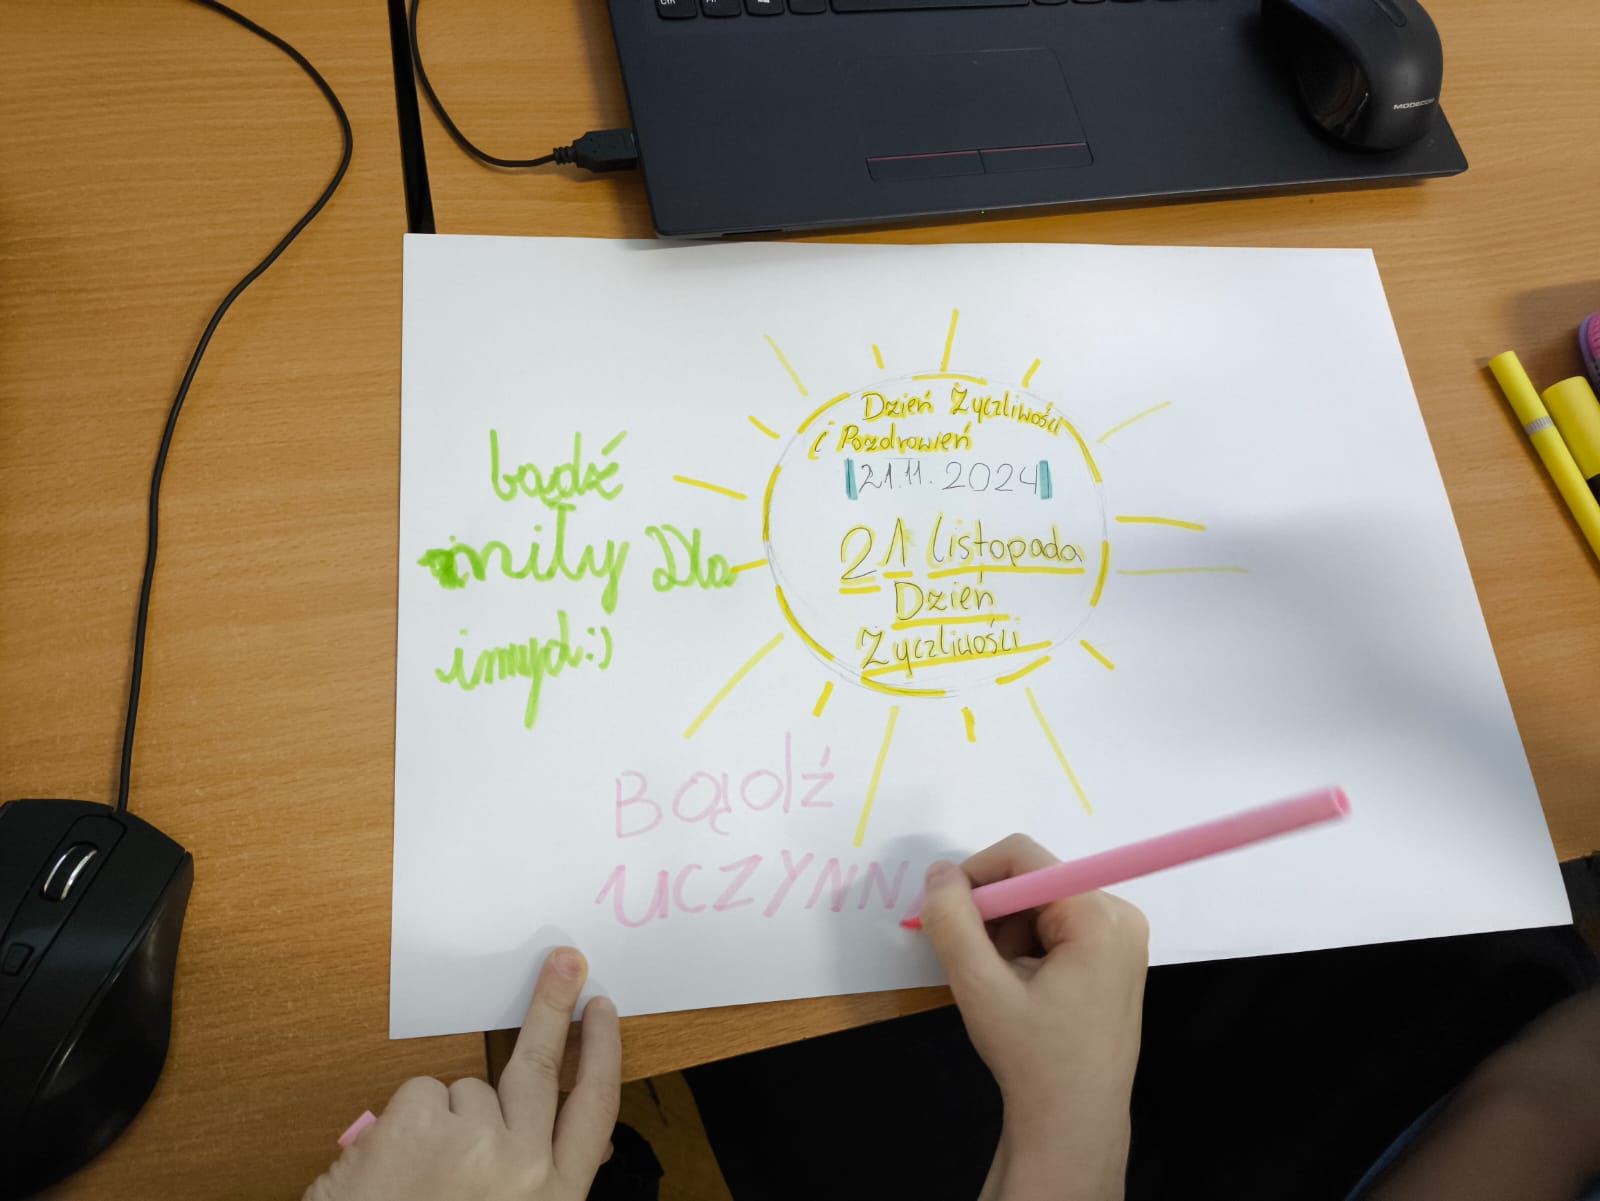 Ctrl
MODECOM
Dzień Życzliwości
i Pozdrowień
21.11.2024
21 listopada
Dzień
Życzliwości
bądź
miły Dla
innych:)
BąDź
UCZYNN